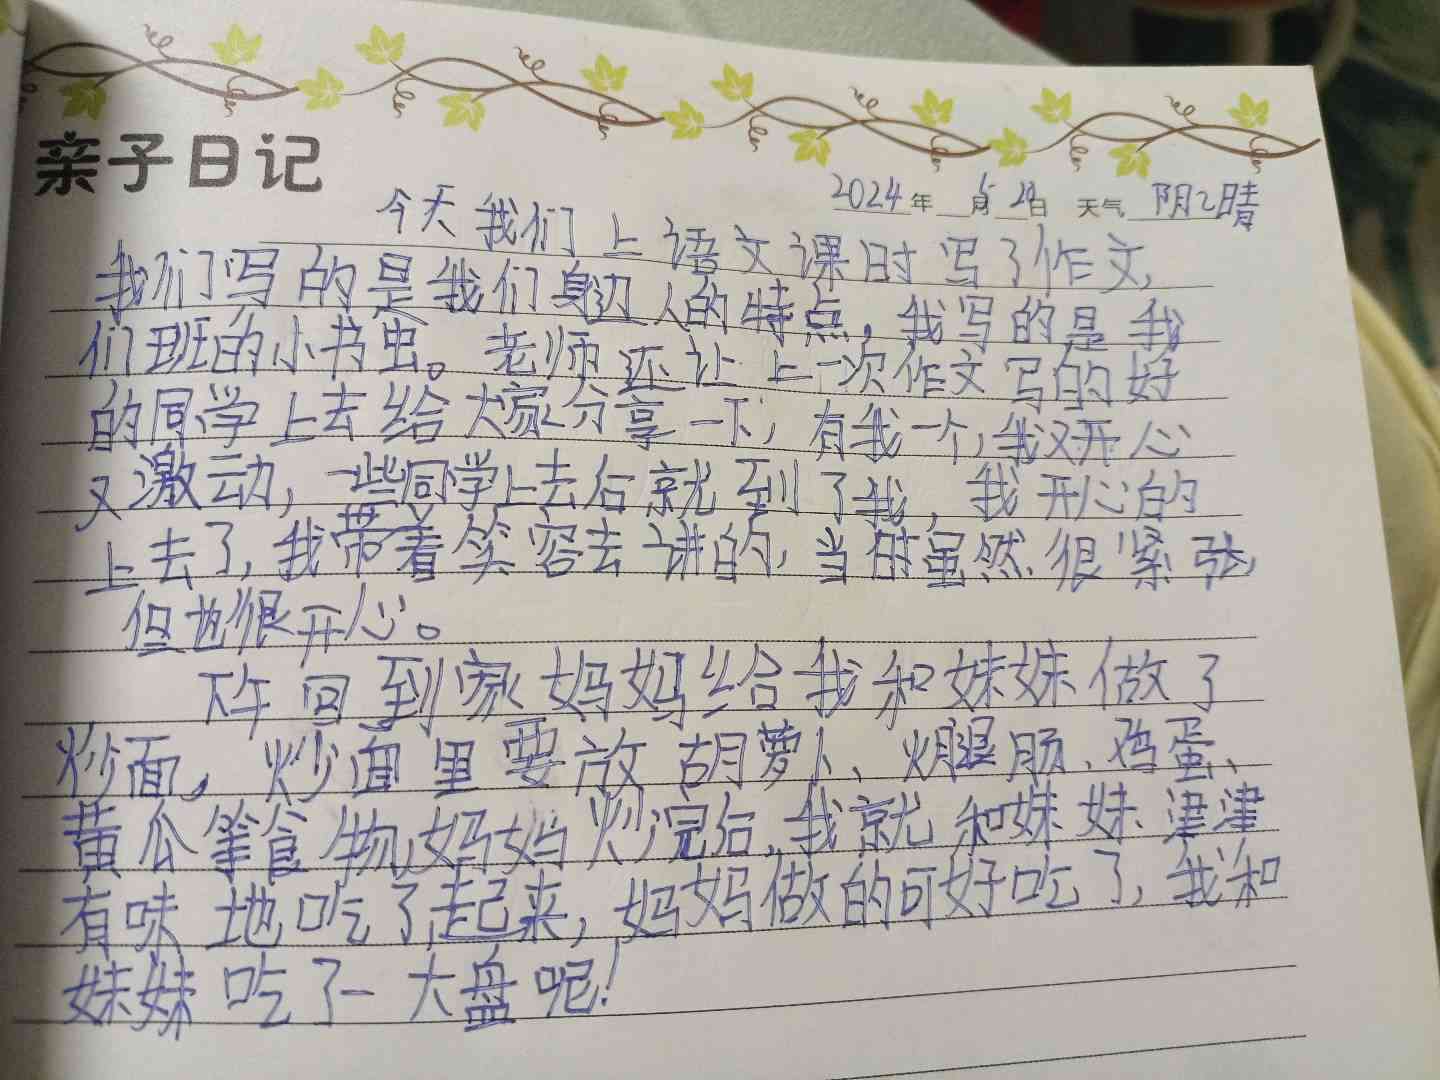 亲子日记
2024年 5月20日 天气 阴~晴
今天我们上语文课时写了作文,
我们写的是我们身边人的特点,我写的是我
们班的小书虫。老师还让上一次作文写的好
的同学上去给大家分享一下,有我一个,我又开心
又激动,一些同学上去后就到了我,我开心的
上去了,我带着笑容去讲的,当时虽然很紧张,
但也很开心。
下午回到家妈妈给我和妹妹做了
炒面,炒面里要放胡萝卜、火腿肠、鸡蛋、
黄瓜等食物,妈妈炒完后,我就和妹妹津津
有味地吃了起来,妈妈做的可好吃了,我和
妹妹吃了一大盘呢!